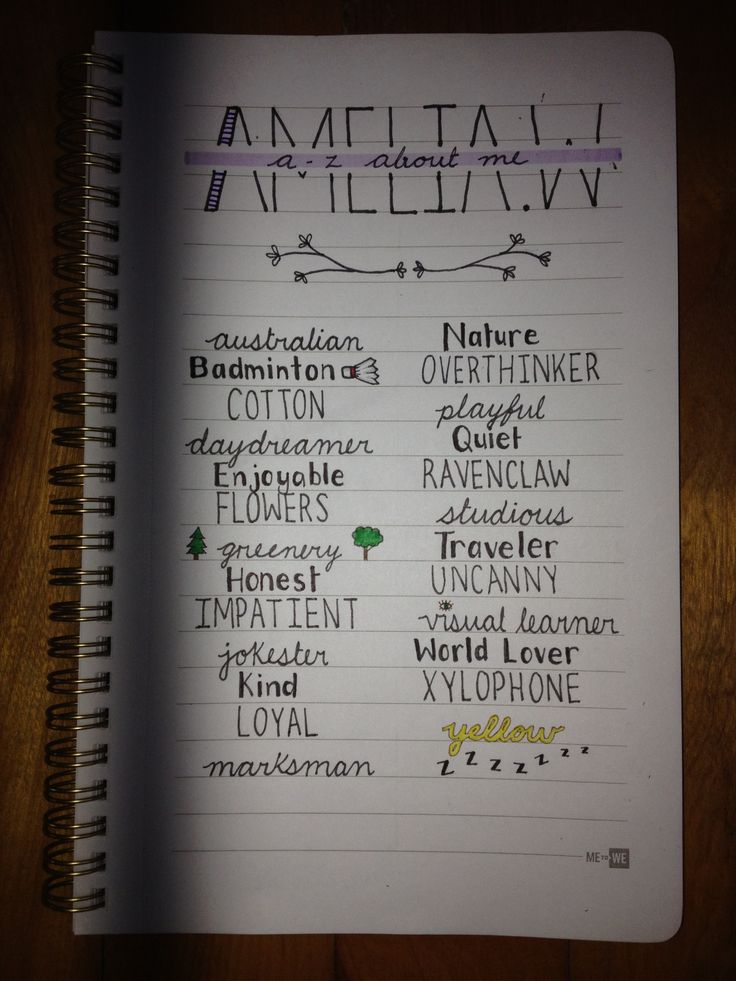 AMELIA.W
a-z about me
australian
Badminton
COTTON
daydreamer
Enjoyable
FLOWERS
greenery
Honest
IMPATIENT
jokester
Kind
LOYAL
marksman
Nature
OVERTHINKER
playful
Quiet
RAVENCLAW
studious
Traveler
UNCANNY
visual learner
World Lover
XYLOPHONE
yellow
z z z z z z z
ME TO WE